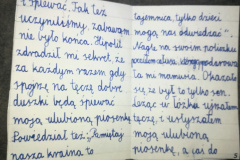 i śpiewać. Jak też
uczyniliśmy, zabawom
nie było końca. Hipolit
zdradził mi sekret, że
za każdym razem gdy
spojrzę na tęczę dobre
duszki będą śpiewać
moją ulubioną piosenkę
Powiedział też "Pamiętaj
nasza kraina to
tajemnica, tylko dzieci
mogą nas odwiedzać".
Nagle na swoim policzku
to mi mamusia. Okazało
się że był to tylko sen.
Leżąc w łóżku ujrzałam
tęczę, i usłyszałam
moją ulubioną
piosenkę, a czas do